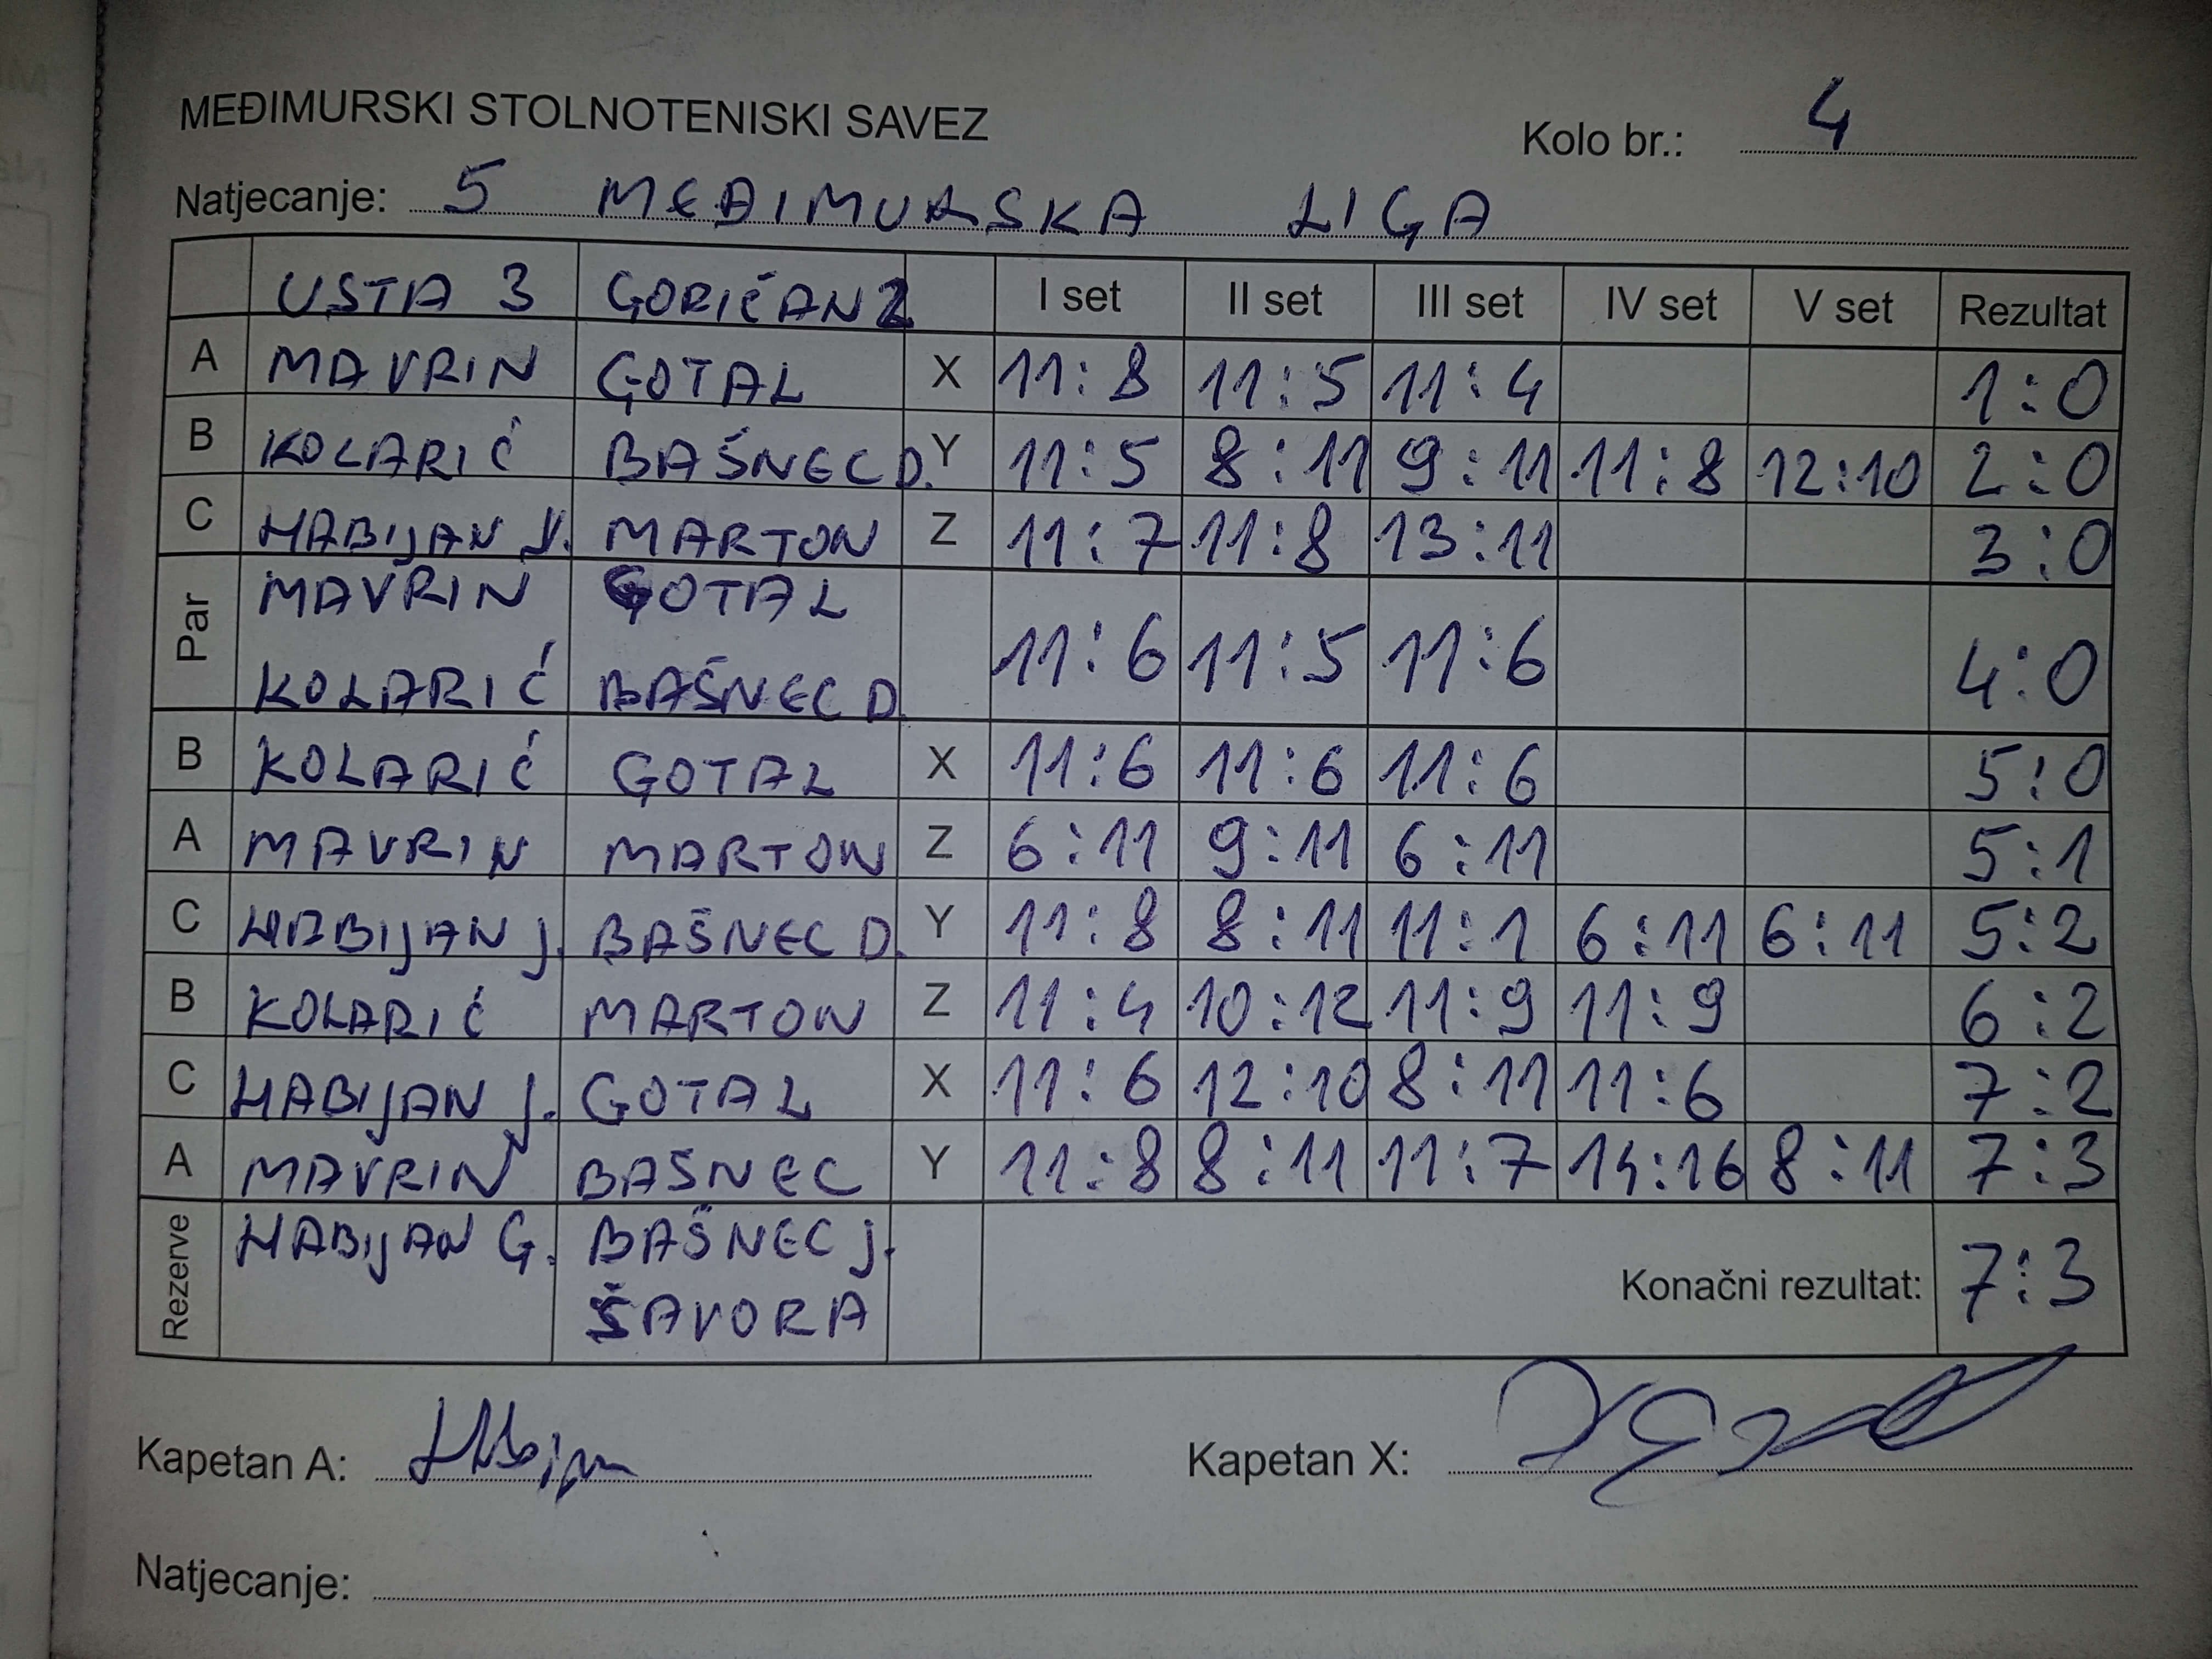 MEĐIMURSKI STOLNOTENISKI SAVEZ
Kolo br.: 4
Natjecanje: 5 MEĐIMURSKA LIGA
USTA 3 GORIČAN 2 I set II set III set IV set V set Rezultat
A MAVRIN GOTAL X 11:8 11:5 11:4 1:0
B KOLARIĆ BAŠNEC D. Y 11:5 8:11 9:11 11:8 12:10 2:0
C HABIJAN J. MARTON Z 11:7 11:8 13:11 3:0
Par MAVRIN GOTAL
KOLARIĆ BAŠNEC D. 11:6 11:5 11:6 4:0
B KOLARIĆ GOTAL X 11:6 11:6 11:6 5:0
A MAVRIN MARTON Z 6:11 9:11 6:11 5:1
C HABIJAN J. BAŠNEC D. Y 11:8 8:11 11:1 6:11 6:11 5:2
B KOLARIĆ MARTON Z 11:4 10:12 11:9 11:9 6:2
C HABIJAN J. GOTAL X 11:6 12:10 8:11 11:6 7:2
A MAVRIN BAŠNEC Y 11:8 8:11 11:7 14:16 8:11 7:3
Rezerve HABIJAN G. BAŠNEC J.
ŠAVORA
Konačni rezultat: 7:3
Kapetan A:
Kapetan X:
Natjecanje: